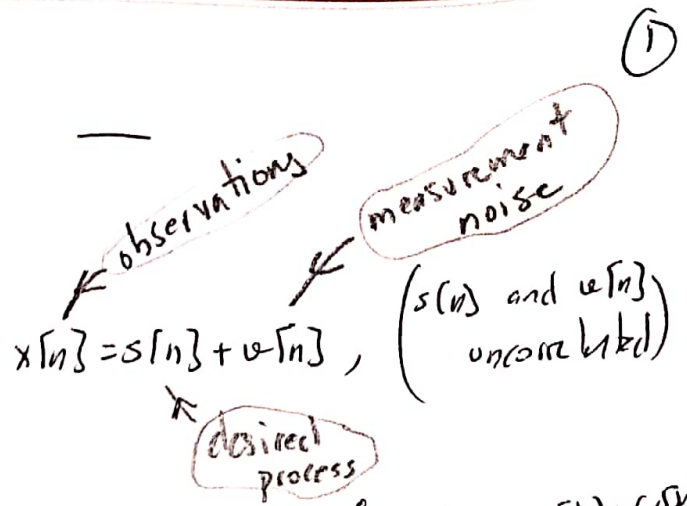 ①
observations
measurement
noise
x[n] = s[n] + v[n], (s[n] and v[n]
uncorrelated)
desired
process